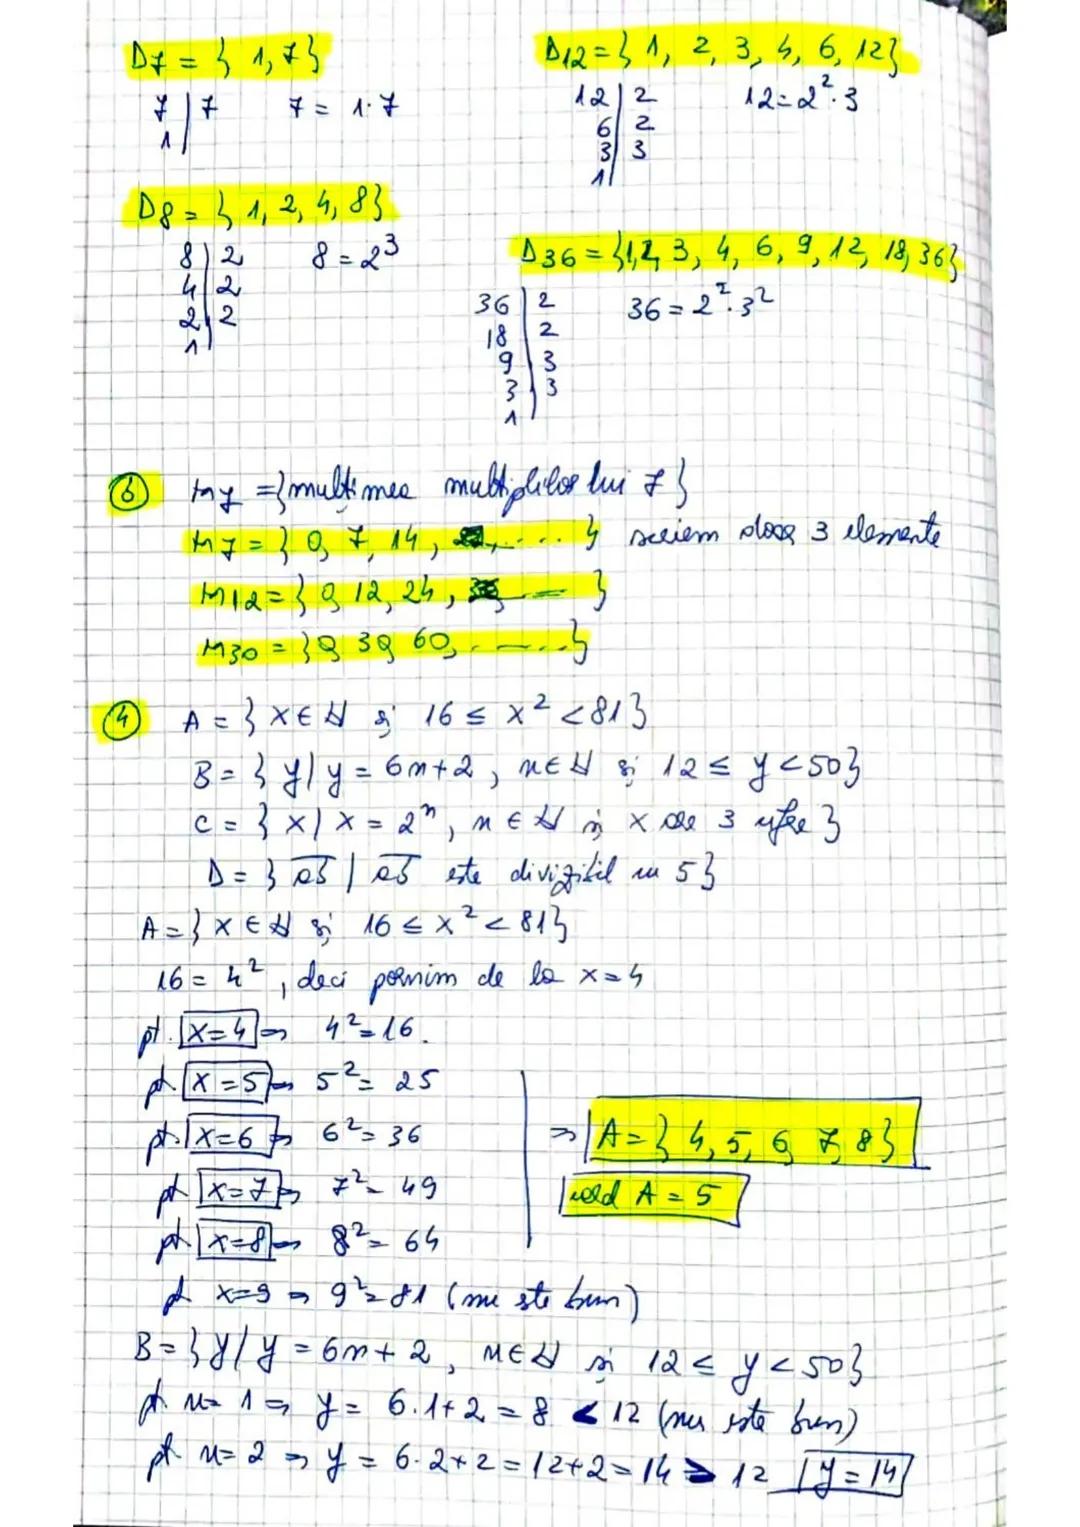 D7 = { 1, 7}
7 | 7    7 = 1·7
1 |
D8 = { 1, 2, 4, 8}
8 | 2    8 = 2³
4 | 2
2 | 2
1 |
D12 = { 1, 2, 3, 4, 6, 12}
12 | 2    12 = 2²·3
6 | 2
3 | 3
1 |
D36 = {1, 2, 3, 4, 6, 9, 12, 18, 36}
36 | 2    36 = 2²·3²
18 | 2
9 | 3
3 | 3
1 |
b M7 = {mulțimea multiplilor lui 7}
M7 = { 0, 7, 14, ....} scriem doar 3 elemente
M12 = { 0, 12, 24, ....}
M30 = { 0, 30, 60, ....}
4 A = { x ∈ N și 16 ≤ x² < 81}
B = { y | y = 6n+2, n ∈ N și 12 ≤ y < 50}
C = { x | x = 2ⁿ, n ∈ N și x are 3 cifre}
D = { ab | ab este divizibil cu 5}
A = { x ∈ N și 16 ≤ x² < 81}
16 = 4², deci pornim de la x = 4
pt. x=4 ⇒ 4² = 16.
pt. x=5 ⇒ 5² = 25
pt. x=6 ⇒ 6² = 36
pt x=7 ⇒ 7² = 49
pt x=8 ⇒ 8² = 64
⇒ A = { 4, 5, 6, 7, 8}
card A = 5
pt x=9 ⇒ 9² = 81 (nu este bun)
B = { y | y = 6n+2, n ∈ N și 12 ≤ y < 50}
pt. n = 1 ⇒ y = 6·1+2 = 8 < 12 (nu este bun)
pt. n = 2 ⇒ y = 6·2+2 = 12+2 = 14 > 12 y = 14